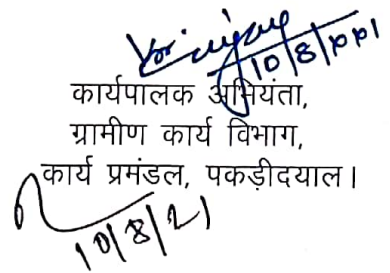 10/8/2021
कार्यपालक अभियंता,
ग्रामीण कार्य विभाग,
कार्य प्रमंडल, पकड़ीदयाल।
10/8/21